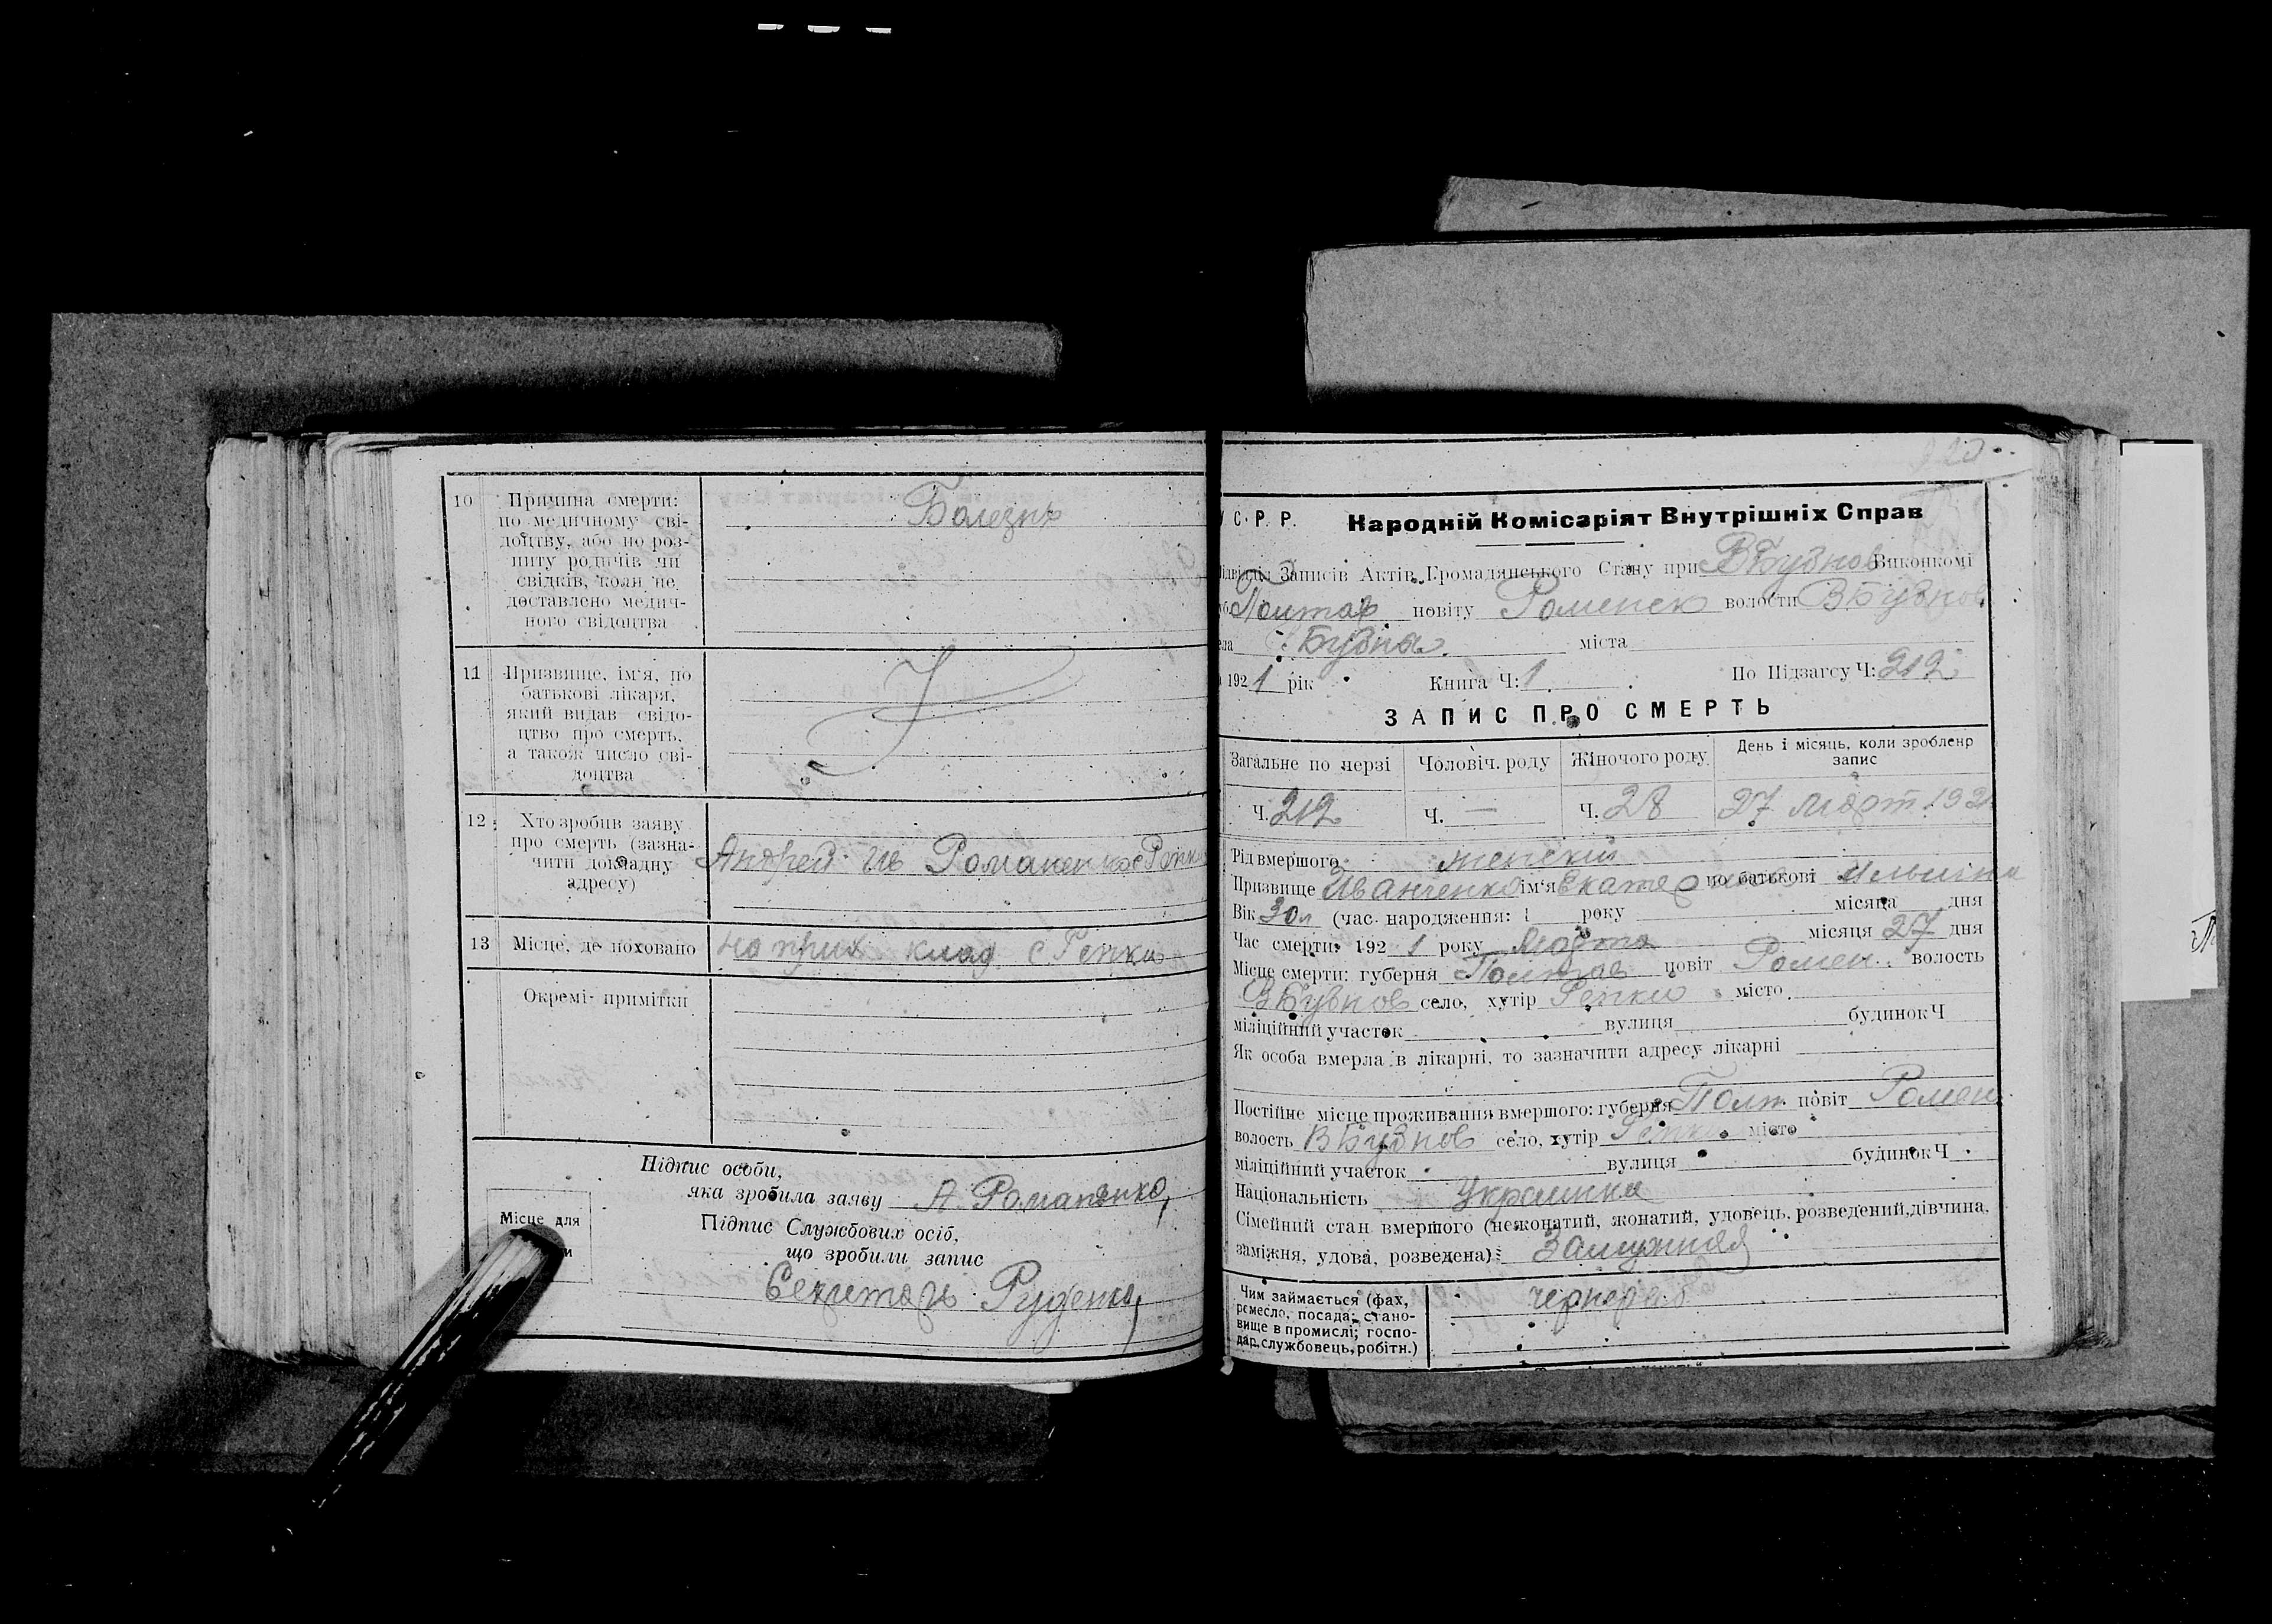 10 Причина смерти: Болезнь
по медичному сві-
доцтву, або по роз-
питу родичів чи
свідків, коли не
доставлено медич-
ного свідоцтва
11 Призвище, ім'я, по
батькові лікаря,
який видав свідо-
цтво про смерть,
а також число сві-
доцтва
12 Хто зробив заяву
про смерть (зазна-
чити докладну Андрей Ив Романенко с Репки
адресу)
13 Місце, де поховано на прих клад с Репки
Окремі примітки
Підпис особи,
яка зробила заяву А. Романенко
Місце для
Підпис Службових осіб,
що зробили запис
Секретарь Руденко
У С. Р. Р. Народній Комісаріят Внутрішніх Справ
Підвідділ Записів Актів Громадянського Стану при ВБубнов Виконкомі
Полтав повіту Роменск волости ВБубнов
села Бубны міста
192 1 рік Книга Ч: 1 По Підзагсу Ч: 212
ЗАПИС ПРО СМЕРТЬ
Загальне по черзі Чоловіч. роду Жіночого роду День і місяць, коли зроблено
запис
Ч. 212 Ч. — Ч. 28 27 март. 1921
Рід вмершого женский
Призвище Иванченко ім'я Екатерина по батькові Ильинич
Вік 30 л (час народження: 1 року місяца дня
Час смерти: 192 1 року Марта місяця 27 дня
Місце смерти: губерня Полтав повіт Ромен. волость
ВБубнов село, хутір Репки місто
міліційний участок вулиця будинок Ч
Як особа вмерла в лікарні, то зазначити адресу лікарні
Постійне місце проживання вмершого: губерня Полт повіт Ромен
волость ВБубнов село, хутір Репки місто
міліційний участок вулиця будинок Ч
Національність Украинка
Сімейний стан вмершого (нежонатий, жонатий, удовець, розведений, дівчина,
заміжня, удова, розведена) Замужняя
Чим займається (фах, чернораб
ремесло, посада, стано-
вище в промислі; госпо-
дар, службовець, робітн.)